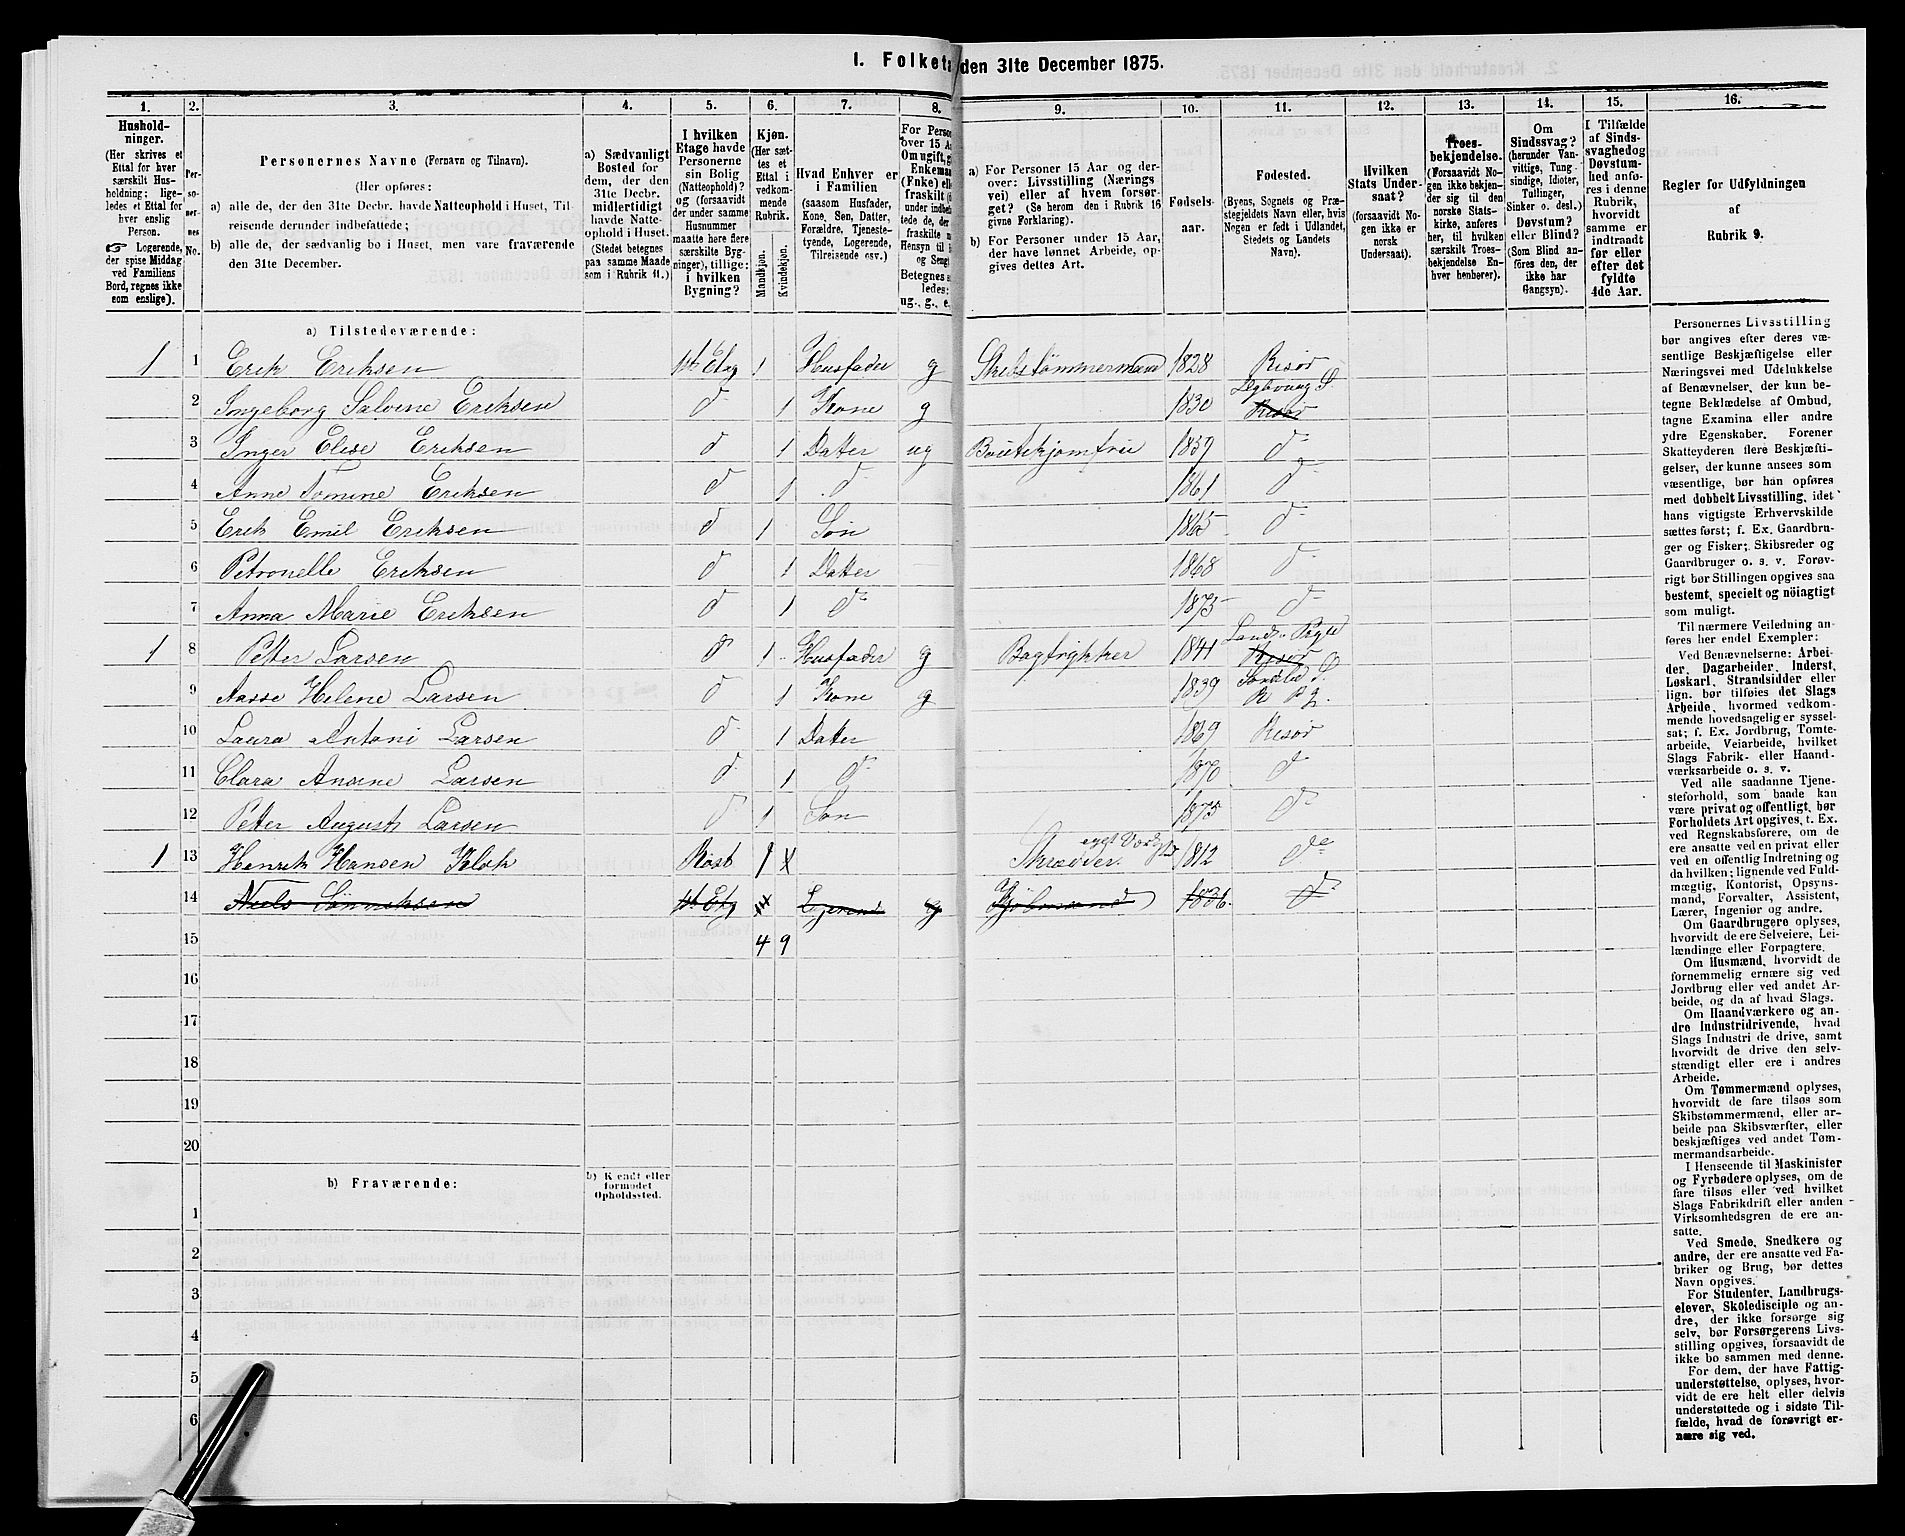 1. Folketæ den 31te December 1875.
1. 2. 3. 4. 5. 6. 7. 8. 9. 10. 11. 12. 13. 14. 15. 16.
Hushold-
ninger.
(Her skrives et
Ettal for hver
særskilt Hus-
holdning; lige-
ledes et Ettal for
hver enslig
Person.
☞ Logerende,
der spise Middag
ved Familiens
Bord, regnes ikke
som enslige).
Per-
so-
ner-
nes
No.
Personernes Navne (Fornavn og Tilnavn).
(Her opføres:
a) alle de, der den 31te Decbr. havde Natteophold i Huset, Til-
reisende derunder indbefattede;
b) alle de, der sædvanlig bo i Huset, men vare fraværende
den 31te December.
a) Sædvanligt
Bosted for
dem, der den
31te Decbr.
midlertidigt
havde Natte-
ophold i Huset.
(Stedet betegnes
paa samme Maade
som i Rubrik 11.)
I hvilken
Etage havde
Personerne
sin Bolig
(Natteophold)?
og (forsaavidt
der under samme
Husnummer
maatte høre flere
særskilte Byg-
ninger), tillige:
i hvilken
Bygning?
Kjøn.
(Her sæt-
tes et
Ettal i
vedkom-
mende
Rubrik.
Mandkjøn.
Kvindekjøn.
Hvad Enhver er
i Familien
(saasom Husfader,
Kone, Søn, Datter,
Forældre, Tjeneste-
tyende, Logerende,
Tilreisende osv.)
For Perso
over 15 A
Om ugift, g
Enkema
(Fnke) ell
fraskilt (
under indb
tede de,
fraskilte
Hensyn til
og Seng
Betegnes s
ledes:
ug., g., e.
a) For Personer 15 Aar og der-
over: Livsstilling (Nærings
vei) eller af hvem forsør-
get? (Se herom den i Rubrik 16
givne Forklaring).
b) For Personer under 15 Aar,
der have lønnet Arbeide, op-
gives dettes Art.
Fødsels-
aar.
Fødested.
(Byens, Sognets og Præ-
stegjeldets Navn eller, hvis
Nogen er født i Udlandet,
Stedets og Landets
Navn).
Hvilken
Stats Under-
saat?
(forsaavidt No-
gen ikke er
norsk
Undersaat).
Troes-
bekjendelse.
(Forsaavidt No-
gen ikke bekjen-
der sig til den
norske Stats-
kirke, anføres
her, til hvilken
særskilt Troes-
bekjendelse En-
hver henhører).
Om
Sindssvag?
(herunder Van-
vittige, Tung-
sindige, Idioter,
Tullinger,
Sinker o. desl.)
Døvstum?
eller Blind?
(Som Blind an-
føres den, der
ikke har
Gangsyn).
I Tilfælde
af Sinds-
svaghedog
Døvstum-
hed anfø-
res i denne
Rubrik,
hvorvidt
samme er
indtraadt
før eller
efter det
fyldte
4de Aar.
Regler for Udfyldningen
af
Rubrik 9.
a) Tilstedeværende:
1 1 Erik Eriksen 1ste Etag 1 Husfader g Skibstømmermand 1828 Risør
2 Ingeborg Salvine Eriksen d 1 Kone g 1830 Risør
3 Inger Elise Eriksen d 1 Datter ug 1859 d
4 Anne Tomine Eriksen d 1 d 1861 d
5 Erik Emil Eriksen d 1 Søn 1865 d
6 Petronelle Eriksen d 1 Datter 1868 d
7 Anna Marie Eriksen d 1 d 1873 d
1 8 Petter Larsen d 1 Husfader g 1841 Risør
9 Aasse Helene Larsen d 1 Kone g 1839
10 Laura Antoni Larsen d 1 Datter 1869 Risør
11 Clara Ansine Larsen d 1 d 1870 d
12 Petter August Larsen d 1 Søn 1873 d
1 13 Henrik Hansen Klok 1 Skræder 1812 d
14 Niels 1ste Etg Logerende g 1836 d
15 4 9
16
17
18
19
20
b) Fraværende:
b) Kjendt eller
formodet
Opholdssted.
1
2
3
4
5
6
Personernes Livsstilling
bør angives efter deres væ-
sentlige Beskjæftigelse eller
Næringsvei med Udelukkelse
af Benævnelser, der kun be-
tegne Beklædelse af Ombud,
tagne Examina eller andre
ydre Egenskaber. Forener
Skatteyderen flere Beskjæfti-
gelser, der kunne ansees som
væsentlige, bør han opføres
med dobbelt Livsstilling, idet
hans vigtigste Erhvervskilde
sættes først; f. Ex. Gaardbru-
ger og Fisker; Skibsreder og
Gaardbruger o. s. v. Forøv-
rigt bør Stillingen opgives saa
bestemt, specielt og nöiagtigt
som muligt.
Til nærmere Veiledning an-
føres her endel Exempler:
Ved Benævnelserne: Arbei-
der, Dagarbeider, Inderst,
Løskarl, Strandsidder eller
lign. bør tilføies det Slags
Arbeide, hvormed vedkom-
mende hovedsagelig er syssel-
sat; f. Ex. Jordbrug, Tomte-
arbeide, Veiarbeide, hvilket
Slags Fabrik- eller Haand-
værksarbeide o. s. v.
Ved alle saadanne Tjene-
steforhold, som baade kan
være privat og offentligt, bør
Forholdets Art opgives, t. Ex.
ved Regnskabsførere, om de
ere ansatte ved en privat eller
ved en offentlig Indretning og
da hvilken; lignende ved Fuld-
mægtig, Kontorist, Opsyns-
mand, Forvalter, Assistent,
Lærer, Ingeniør og andre.
Om Gaardbrugere oplyses,
hvorvidt de ere Selveiere, Lei-
lændinge eller Forpagtere.
Om Husmænd, hvorvidt de
fornemmelig ernære sig ved
Jordbrug eller ved andet Ar-
beide, og da af hvad Slags.
Om Haandværkere og an-
dre Industridrivende, hvad
Slags Industri de drive, samt
hvorvidt de drive den selv-
stændigt eller ere i andres
Arbeide.
Om Tømmermænd oplyses,
hvorvidt de fare tilsøs som
Skibstømmermænd, eller ar-
beide paa Skibsværfter, eller
beskjæftiges ved andet Tøm-
mermandsarbeide.
I Henseende til Maskinister
og Fyrbødere oplyses, om de
fare tilsøs eller ved hvilket
Slags Fabrikdrift eller anden
Virksomhedsgren de ere an-
satte.
Ved Smede, Snedkere og
andre, der ere ansatte ved Fa-
briker og Brug, bør dettes
Navn opgives.
For Studenter, Landbrugs-
elever, Skoledisciple og an-
dre, der ikke forsørge sig
selv, bør Forsørgerens Livs-
stilling opgives, forsaavidt de
ikke bo sammen med denne.
For dem, der have Fattig-
understøttelse, oplyses, hvor-
vidt de ere helt eller delvis
understøttede og i sidste Til-
fælde, hvad de forøvrigt er-
nære sig ved.